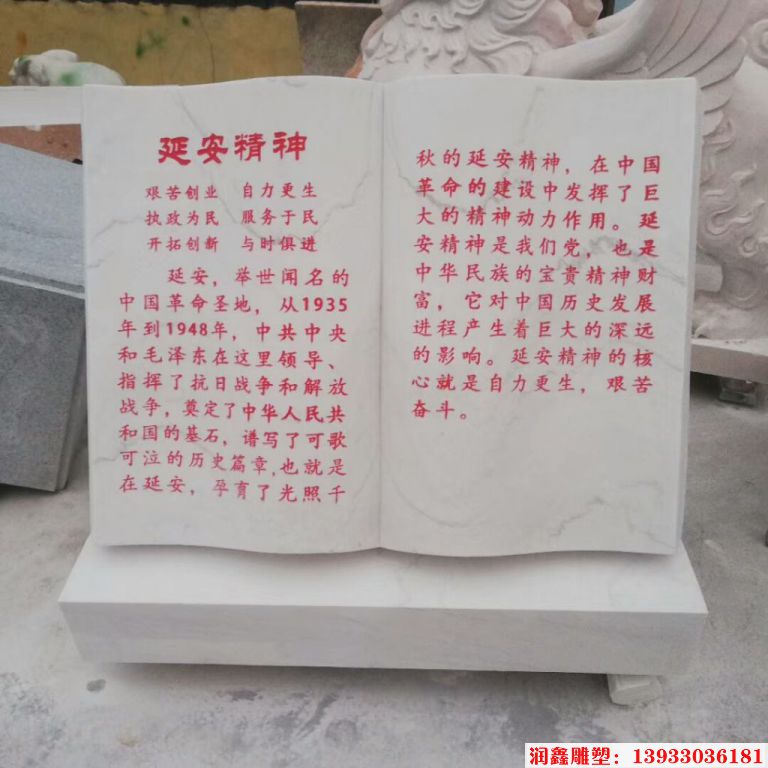 延安精神
艰苦创业 自力更生
执政为民 服务于民
开拓创新 与时俱进
延安，举世闻名的
中国革命圣地，从1935
年到1948年，中共中央
和毛泽东在这里领导、
指挥了抗日战争和解放
战争，奠定了中华人民共
和国的基石，谱写了可歌
可泣的历史篇章，也就是
在延安，孕育了光照千
秋的延安精神，在中国
革命的建设中发挥了巨
大的精神动力作用。延
安精神是我们党，也是
中华民族的宝贵精神财
富，它对中国历史发展
进程产生着巨大的深远
的影响。延安精神的核
心就是自力更生，艰苦
奋斗。
润鑫雕塑：13933036181